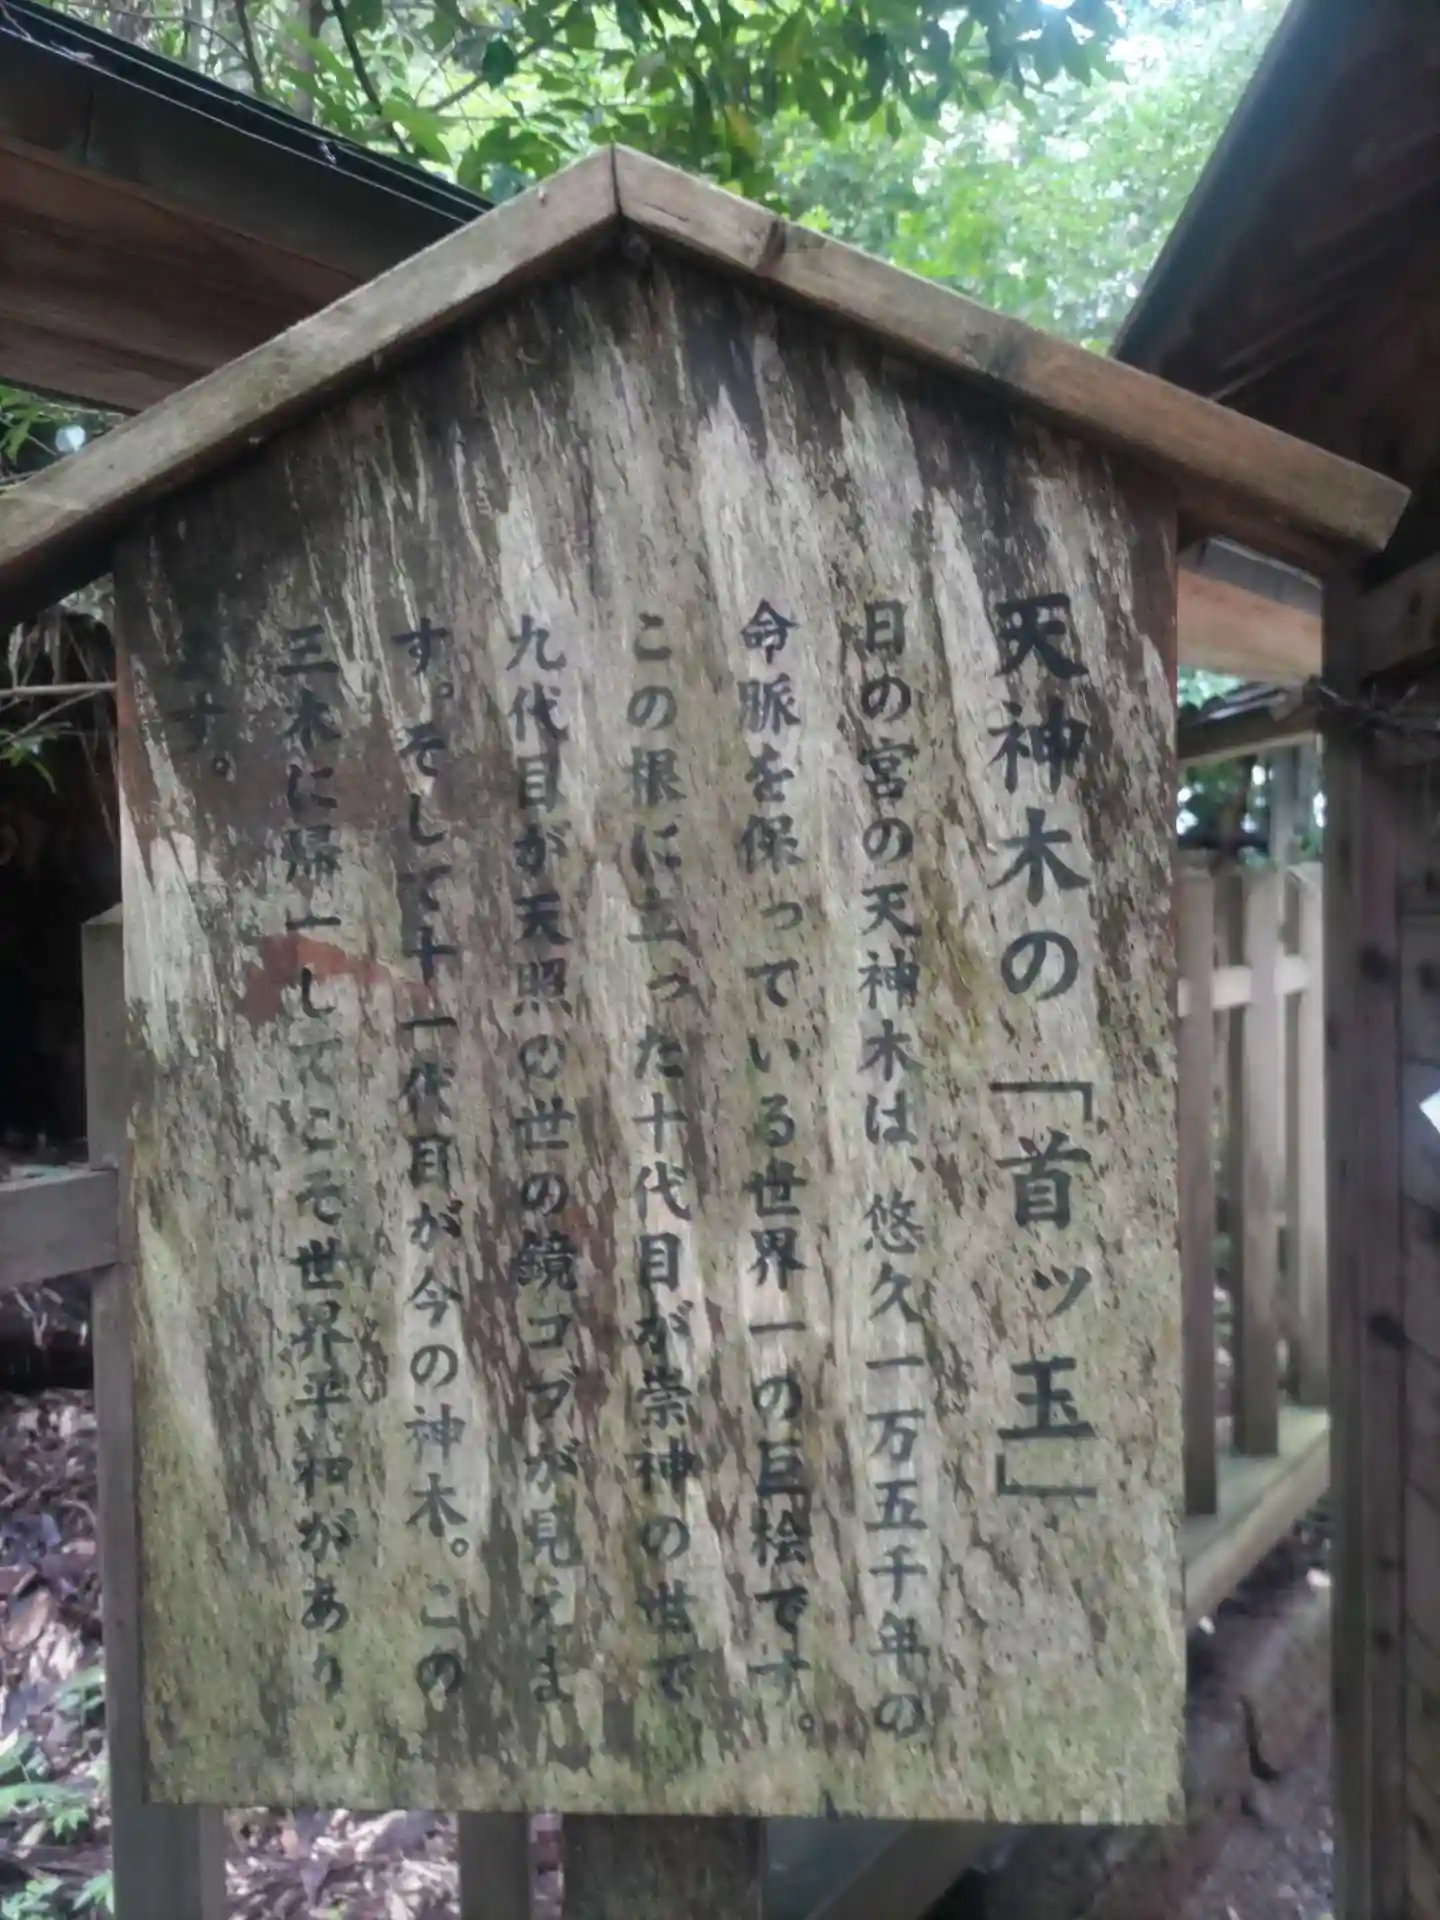 天神木の「首ッ玉」
日の宮の天神木は、悠久一万五千年の
命脈を保っている世界一の巨桧です。
この根に立った十代目が崇神の世で
九代目が天照の世の鏡コブが見えま
す。そして十一代目が今の神木。この
三木に帰一してこそ世界平和があり
ます。